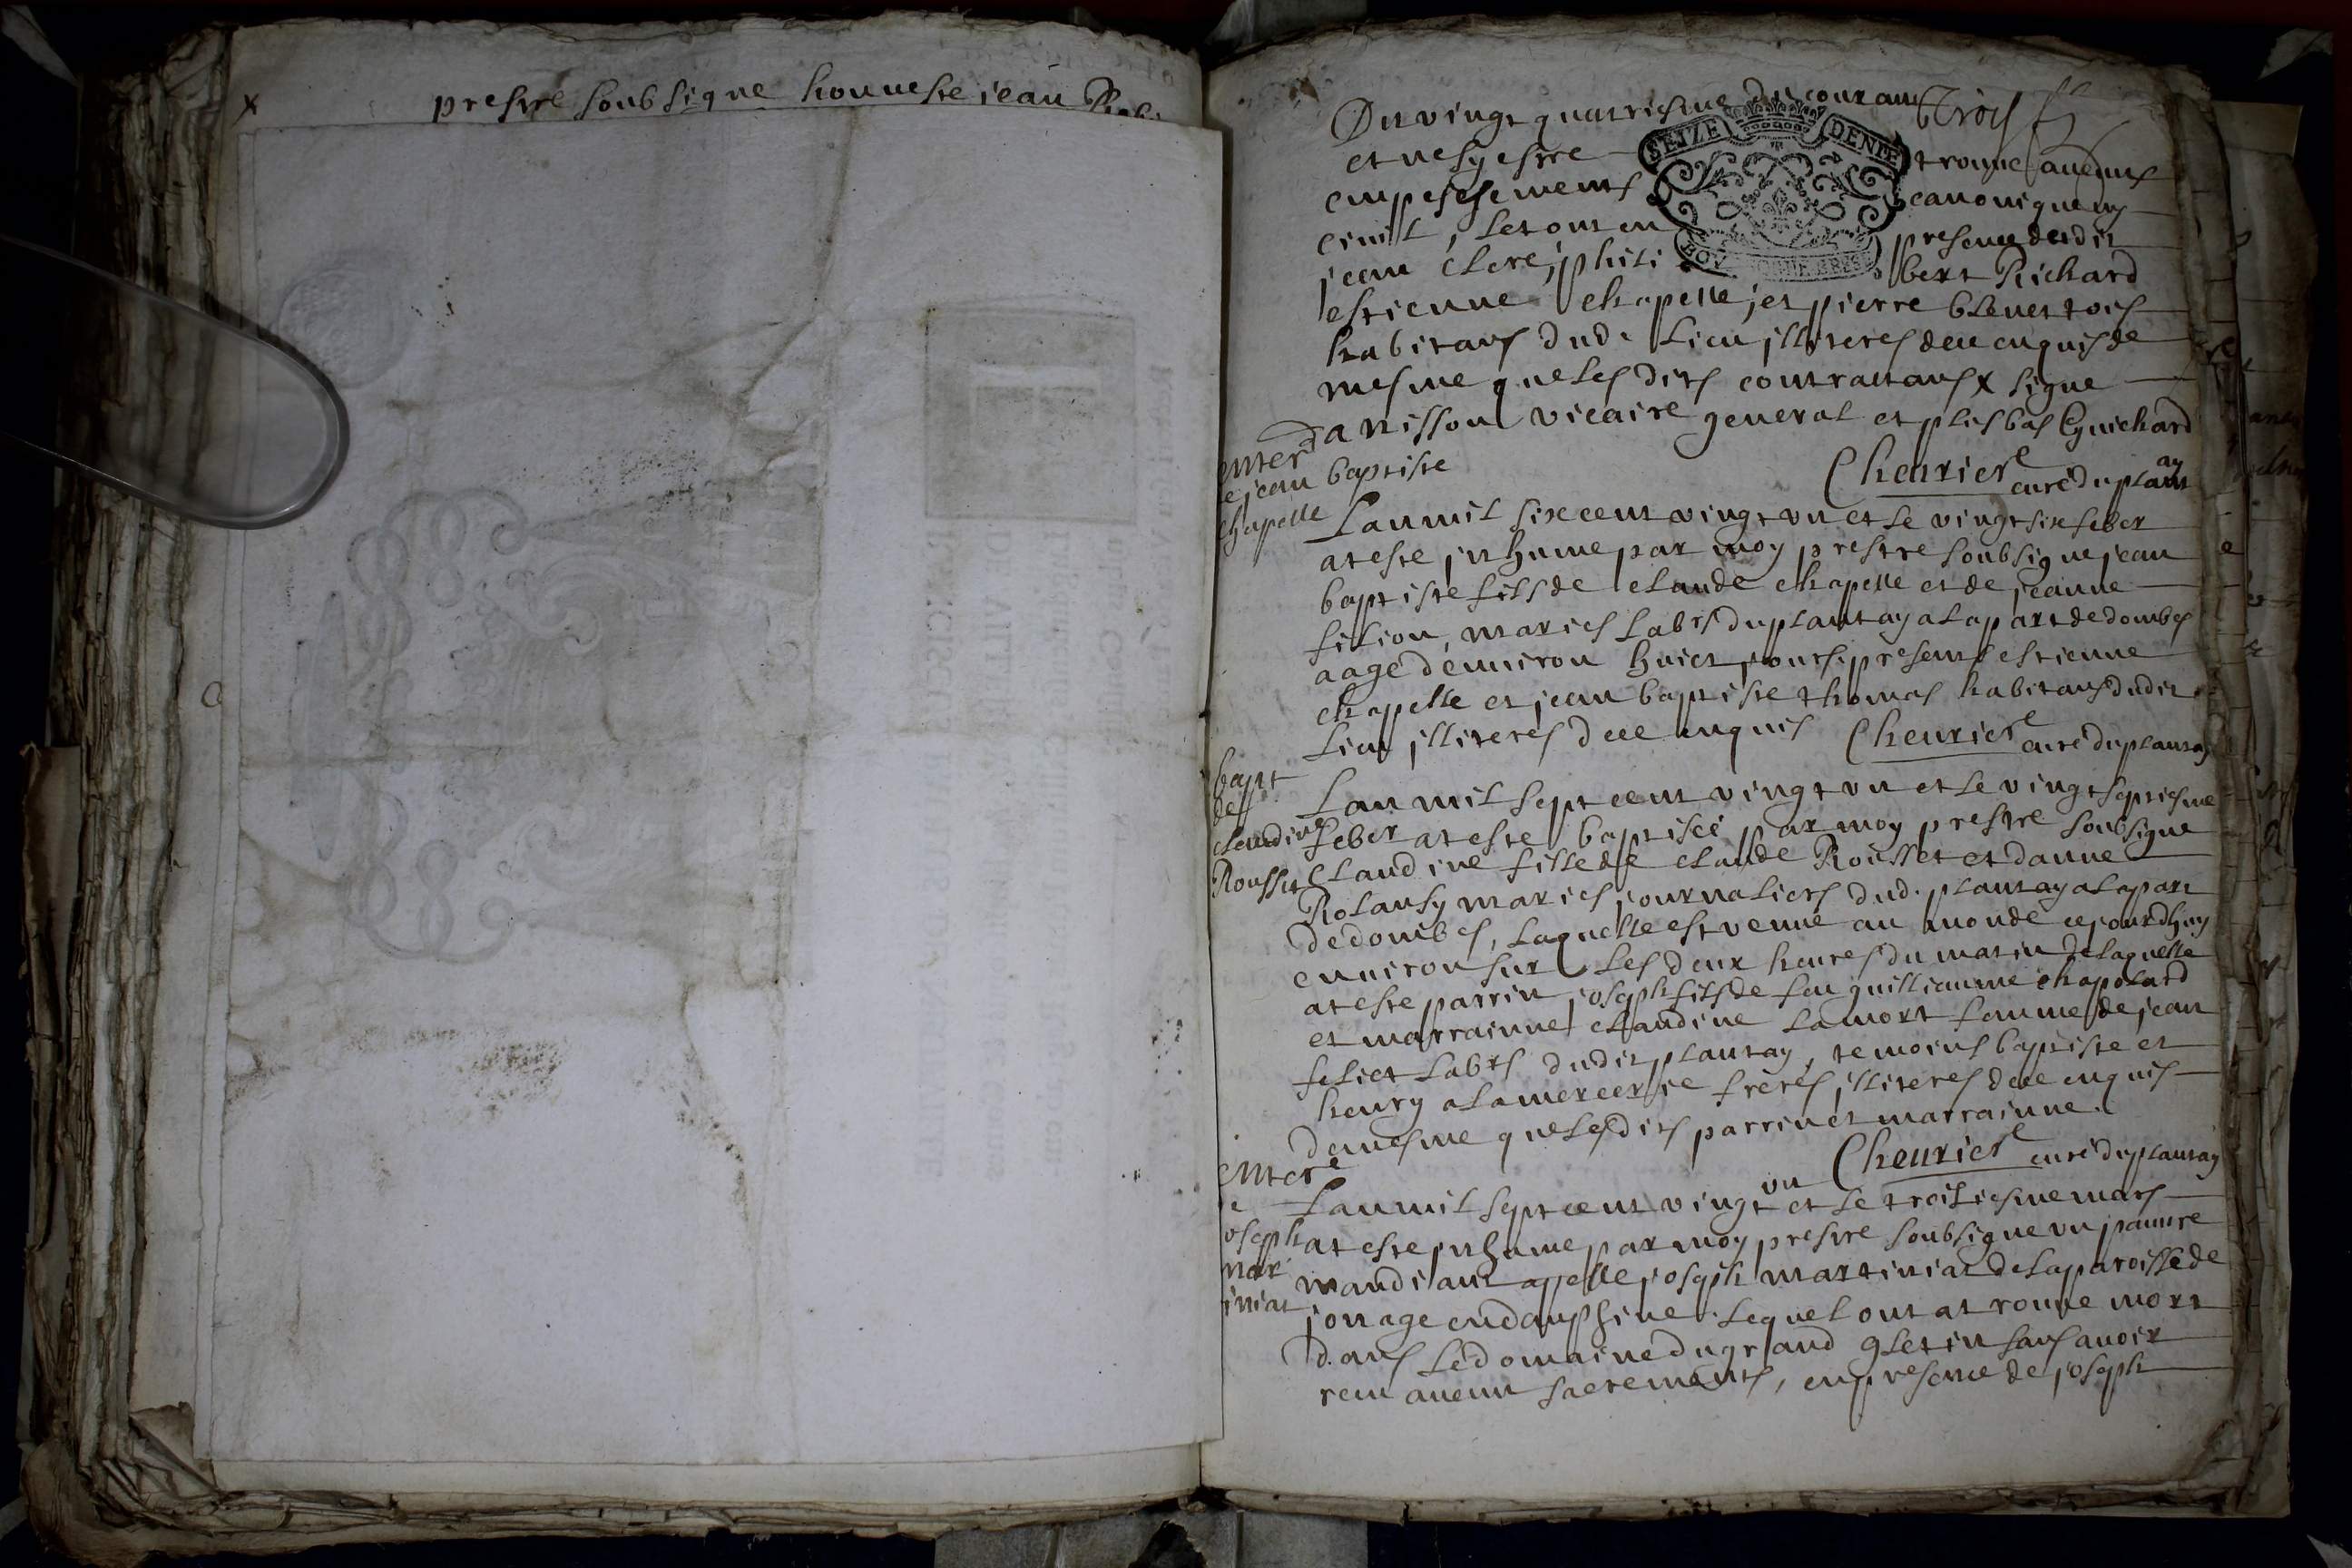 x prestre soubsigne honneste jean
Du vingt quatriesme du courant trois
et ne sy estre trouve aucuns
SEIZE DENIE
empeschements canonique ny
civil, le tout en presence dudit
jean clere, phili bert Richard
estienne chapelle, et pierre blenet tois
habitans dud. lieu illiteres deue enquis de
mesme que lesdits contractans x signe
danisson vicaire general et plus bas Guichard
Cheurier curé du plantay
enter
e jean baptiste
chapelle
Lan mil sixe cent vingt un et le vingt sixe feber
at este inhume par moy prestre soubsigne jean
baptiste fils de claude chapelle et de jeanne
filion, maries labrs du plantay a la part de dombes
aagé denuiron huict jours, presents estienne
chapelle et jean baptiste thomas habitans dudit
lieu illiteres deue enquis Cheurier curé du plantay
bapt
de
claudine
Rousset
Lan mil sept cent vingt un et le vingt septiesme
feber at este baptiseé par moy prestre soubsigne
Claudine fille de claude Rousset et danne
Rolansy maries journaliers dud. plantay a la part
de dombes, laquelle est venue au monde cejourdhuy
enuiron sur les deux heures du matin de laquelle
at este parrin joseph fils de feu guilliaume chapolard
et marrainne claudine lamort famme de jean
feliet labrs dudit plantay, temoins baptiste et
henry alamercerie freres, illiteres deue enquis
de mesme que lesdits parrin et marrainne.
Cheurier curé du plantay
enter
e
oseph
mar
iniat
Lan mil sept cent vingt un et le troisiesme mars
at este inhume par moy prestre soubsigne un pauure
mandiant appelle joseph martiniat de la paroisse de
jonage en dauphiné lequel ont at trouue mort
dans le domaine du grand gletin sans auoir
receu aucun sacrements, en presence de joseph